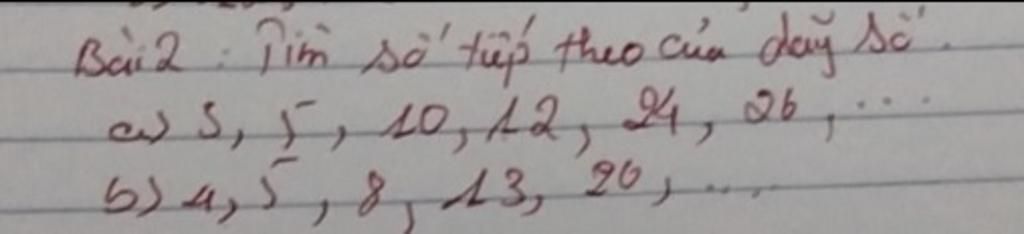 Bài 2: Tìm số tiếp theo của dãy số.
a) 3, 5, 10, 12, 24, 26, ....
b) 4, 5, 8, 13, 20, ....